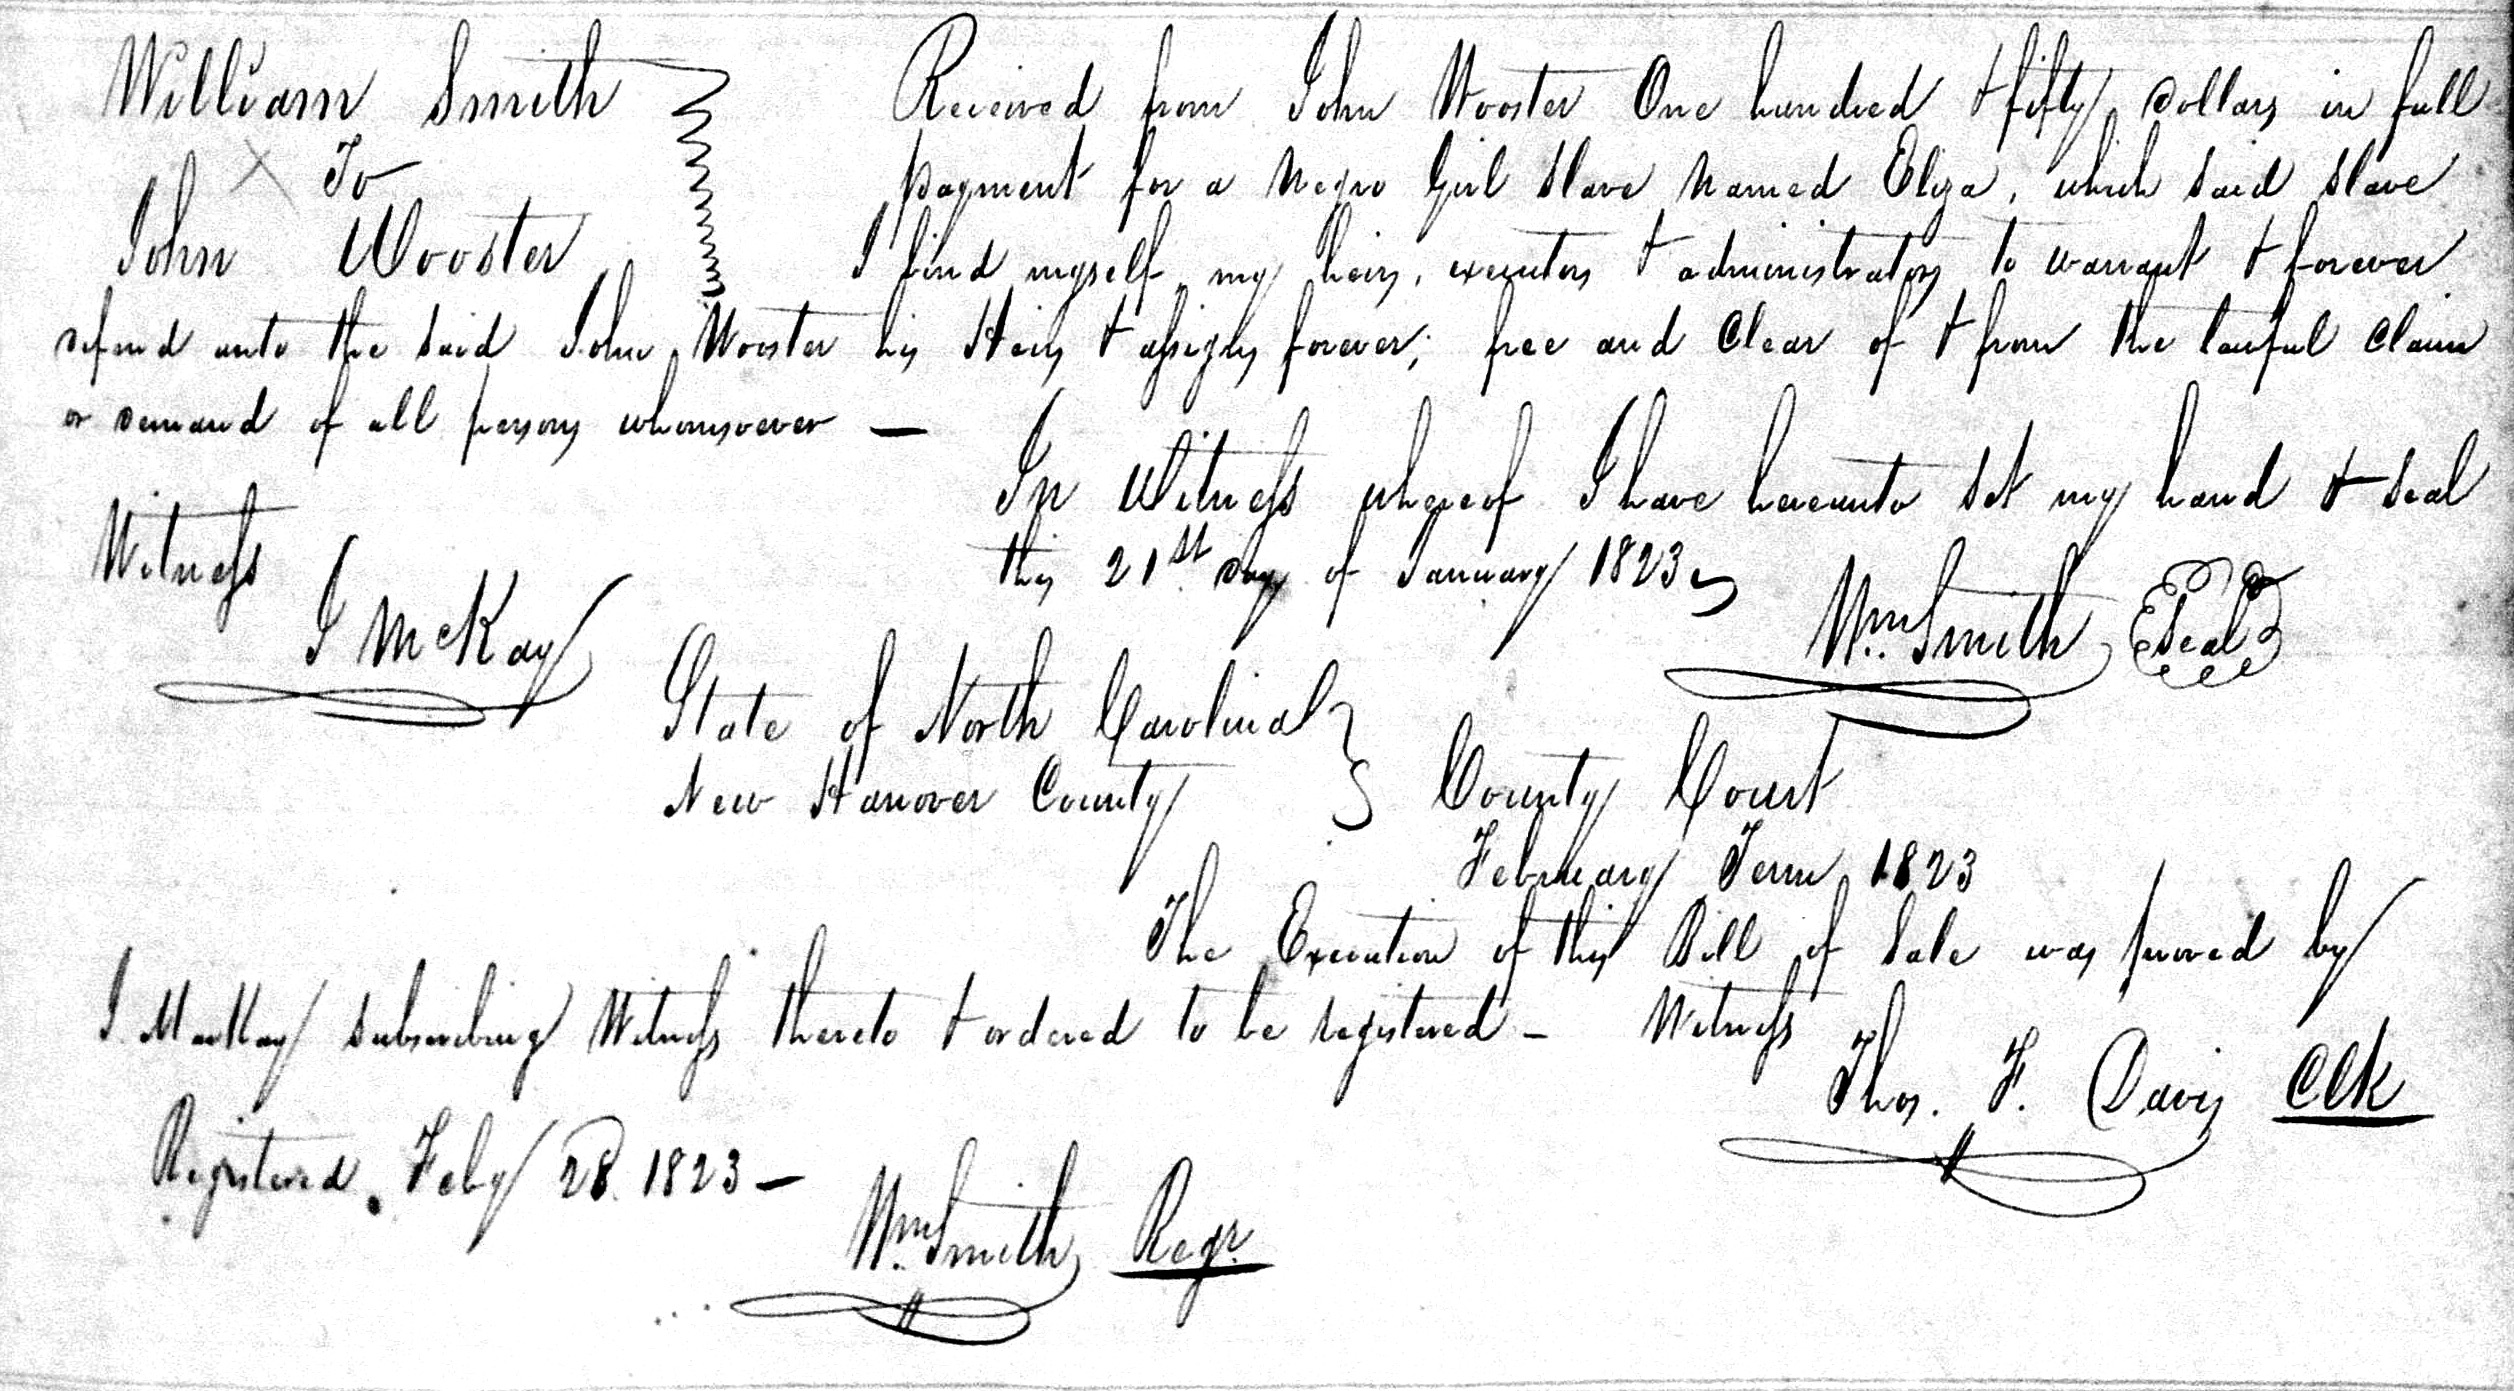 William Smith
To
John Wooster
Received from John Wooster One hundred & fifty dollars in full
payment for a Negro Girl Slave Named Eliza, which said Slave
I bind myself my heirs, executors & administrators to warrant & forever
defend unto the said John Wooster his Heirs & assigns forever; free and Clear of & from the lawful Claim
or demand of all persons whomsoever —
In Witness whereof I have hereunto set my hand & seal
this 21st day of January 1823
Witness
J McKay
Wm Smith Seal
State of North Carolina
New Hanover County
County Court
February Term 1823
The Execution of this Bill of Sale was proved by
J. MacKay subscribing Witness thereto & ordered to be registered - Witness
Thos. F. Davis Clk
Registered Feby 28 1823 —
Wm Smith Regr.